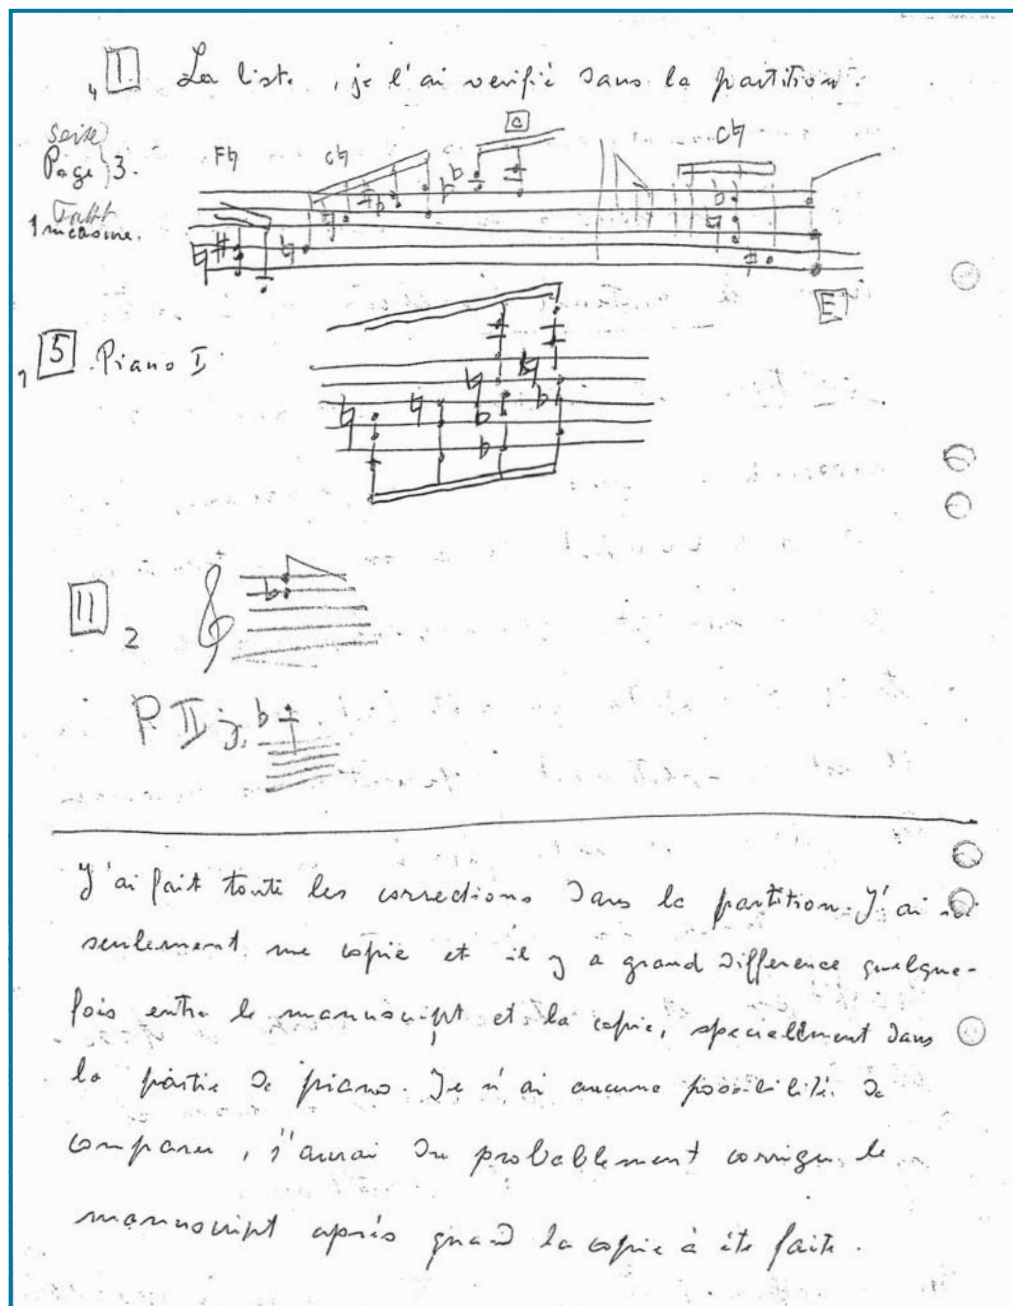 1 La liste, je l'ai verifié dans la partition.
Seite
Page } 3.
F♮ C♮ C C♮
Takt
1 measure.
E
5 Piano II
11 2
P. II
J'ai fait toute les corrections dans la partition. J'ai ici
seulement une copie et il y a grand difference quelque-
fois entre le manuscript et la copie, speciellement dans
la partie de piano. Je n'ai aucune possibilité de
comparer, j'aurai du probablement corriger le
manuscript après quand la copie à été faite.